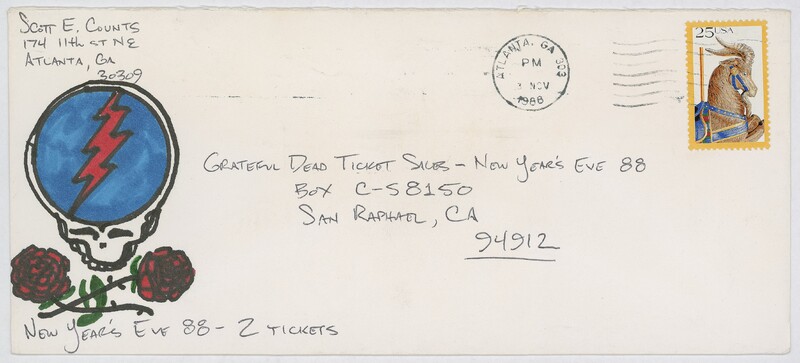 Scott E. Counts
174 11th St NE
Atlanta, GA
30309
ATLANTA, GA 303
PM
3 NOV
1988
25USA
Grateful Dead Ticket Sales - New Year's Eve 88
Box C-S8150
San Raphael, CA
94912
New Year's Eve 88 - 2 tickets